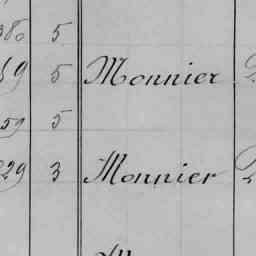 386 5
59 5 Monnier
59 5
229 3 Monnier